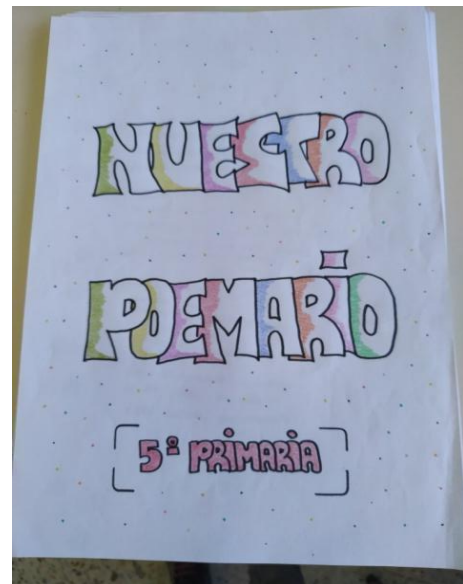 NUESTRO
POEMARIO
5º PRIMARIA